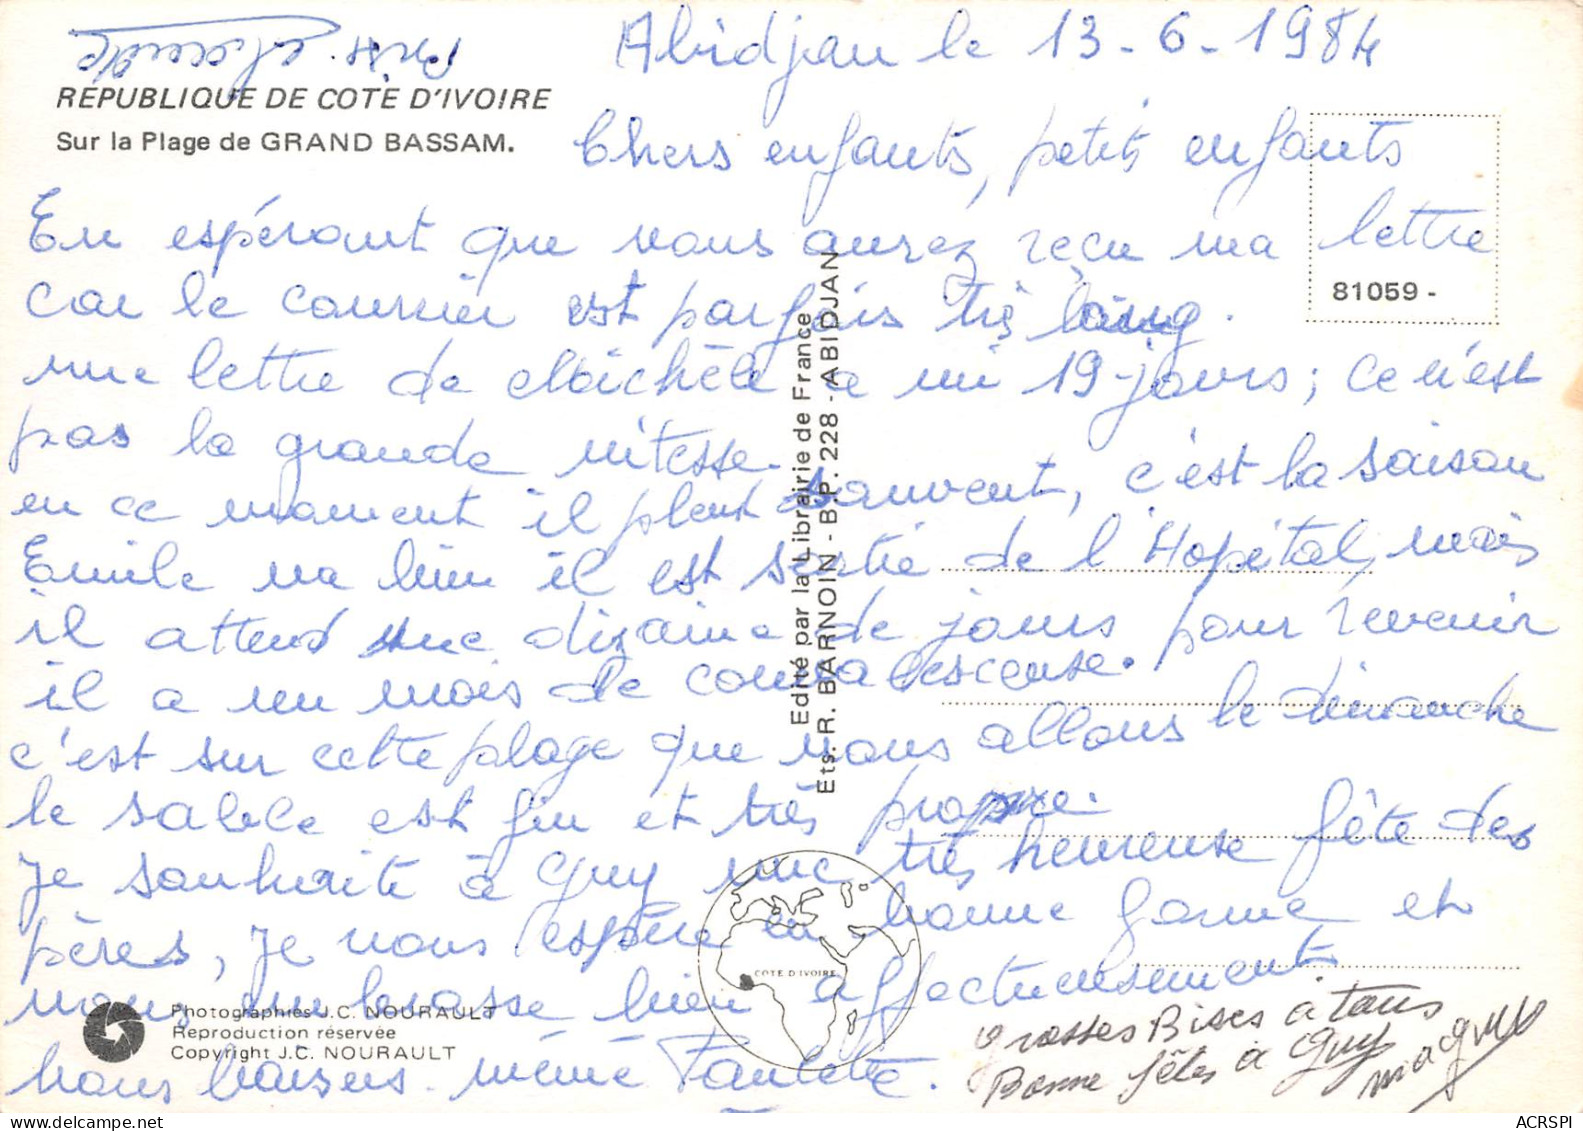 Bises
Abidjan le 13-6-1984
REPUBLIQUE DE COTE D'IVOIRE
Sur la Plage de GRAND BASSAM.
Chers enfants, petits enfants
En espérant que vous aurez reçu ma lettre
car le courrier est parfois très long.
81059 -
une lettre de Michèle a mi 19 jours; ce n'est
pas la grande vitesse.
en ce moment il pleut souvent, c'est la saison
Emile va bien il est sortie de l'Hopital, mais
il attend une dizaine de jours pour revenir
il a un mois de convalescense.
c'est sur cette plage que nous allons le dimanche
le sable est fin et très propre.
Je souhaite à Guy une très heureuse fête des
pères, je vous espère en bonne forme et
vous embrasse bien affectueusement
bons baisers mémé Paulette.
Grosses Bises à tous
Bonne fêtes à Guy
maguy
Edité par la Librairie de France
Ets. R. BARNOIN - B.P. 228 - ABIDJAN
COTE D'IVOIRE
Photographies J.C. NOURAULT
Reproduction réservée
Copyright J.C. NOURAULT
ACRSPI